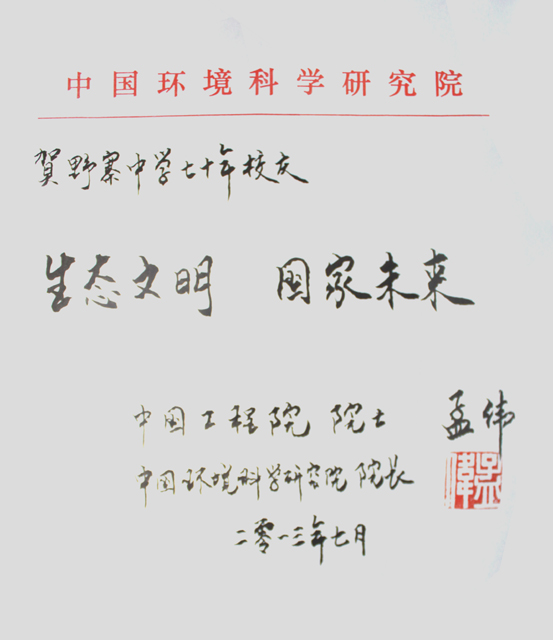 中国环境科学研究院
賀野寨中学七十年校庆
生态文明 国家未来
中国工程院 院士 孟伟
中国环境科学研究院 院长
孟偉
二零一三年七月